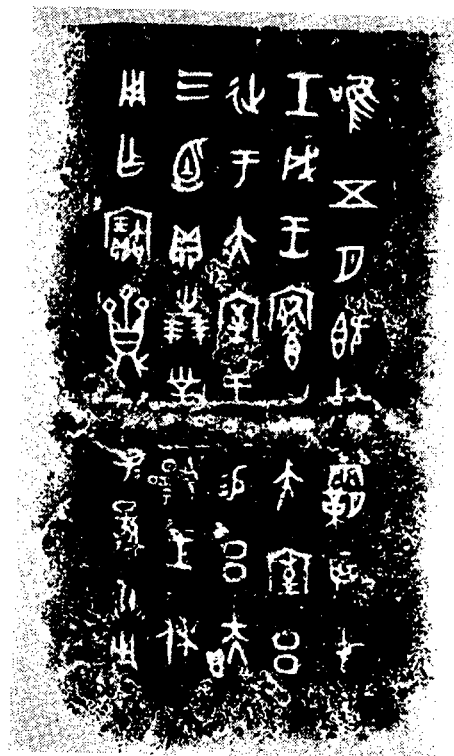 唯五月既死霸辰才
壬戌王于大室呂
延于大室王易呂
三卣貝卅朋對揚王休
用乍寶齍子子孫孫永用